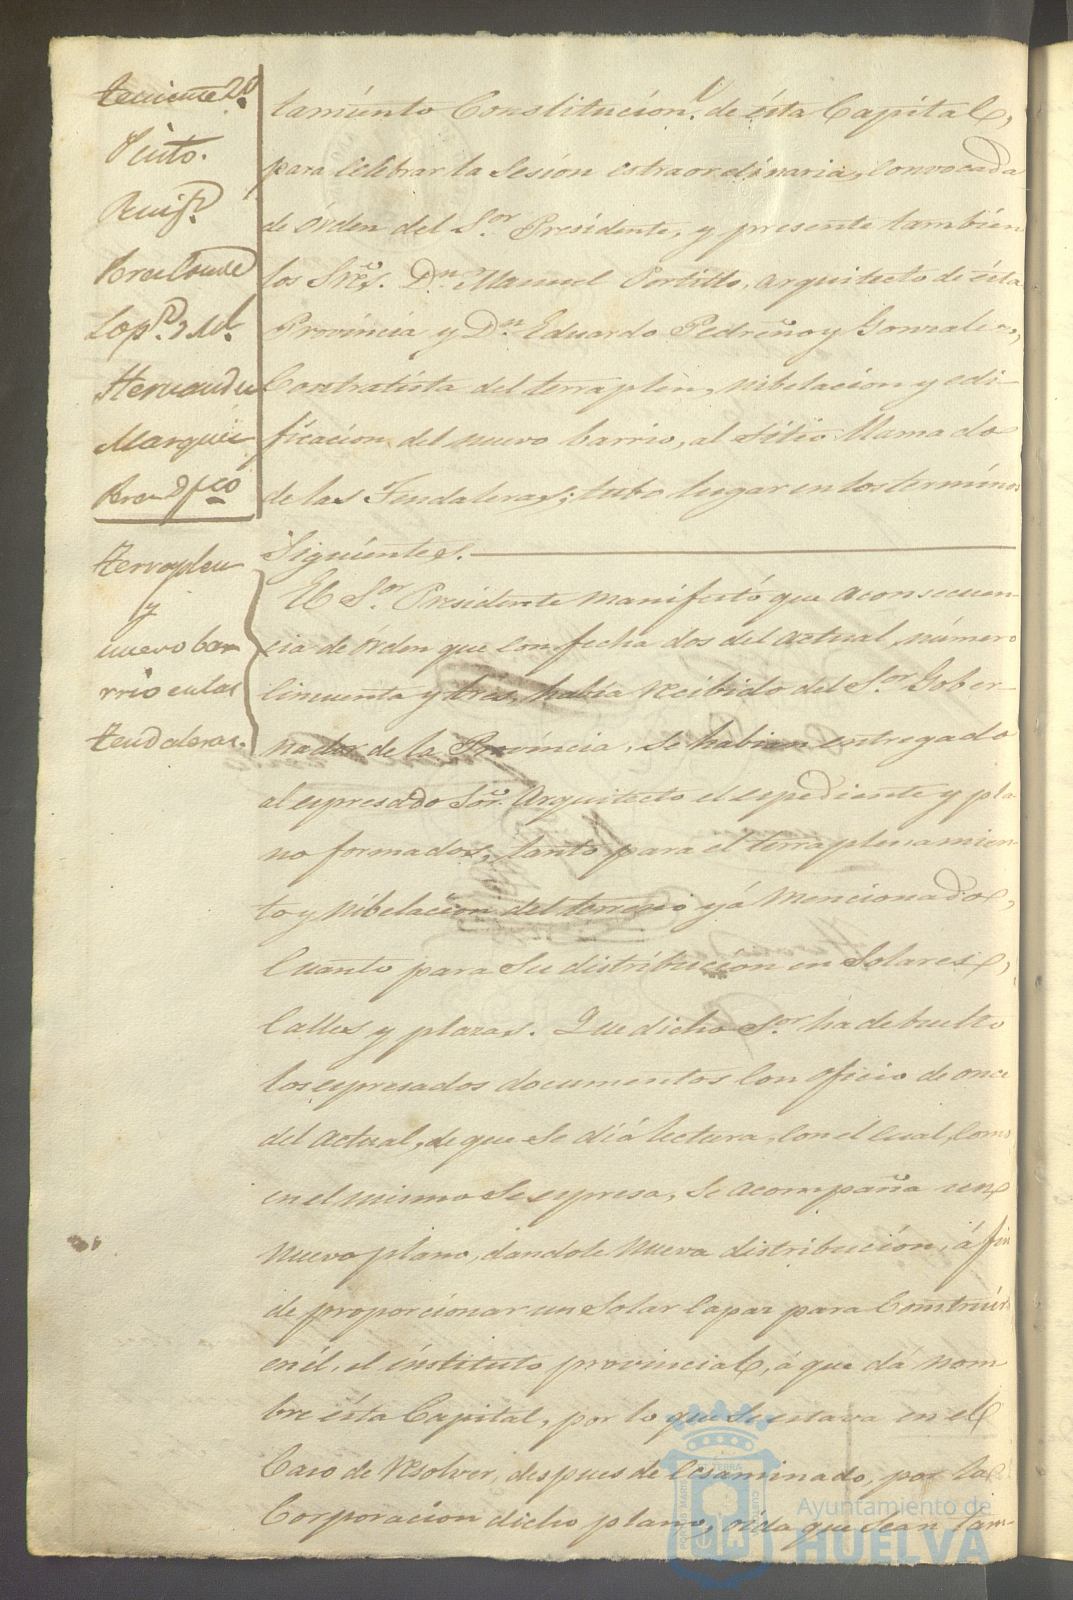 Teniente 2º
Pinto.
Ruifz.
Lopz.
Hernandez
Marquez
Terraplen
y
nuevo bar
rrio en las
tendaleras.
tamiento Constitucionl. de ésta Capital,
para celebrar la Sesión estraordinaria, convocada
de órden del Sor. Presidente, y presente también
los Sres. Dn. Manuel Portillo, arquitecto de ésta
Provincia y Dn. Eduardo Pedreño y Gonzalez,
Contratista del terraplén, nibelacion y edi-
ficacion del nuevo barrio, al Sitio llamado
de las Tendaleras; tubo lugar en los términos
Siguientes.
El Sor. Presidente manifestó que aconsecuen-
cia de órden que con fecha dos del actual, número
cincuenta y tres, habia recibido del Sor. Gober-
nador de la Provincia, se habian entregado
al espresado Sor. Arquitecto el espediente y pla-
no formados, tanto para el terraplenamien-
to y nibelacion del terreno yá mencionado,
cuanto para su distribucion en Solares,
Calles y plazas. Que dicho Sor. há debuelto
los espresados documentos con oficio de once
del actual, de que se dió lectura, con el cual, como
en el mismo se espresa, se acompaña un
nuevo plano, dandole nueva distribucion, á fin
de proporcionar un Solar capaz para Construir
en él, el instituto provincial, á que dá nom-
bre ésta Capital, por lo que se estava en el
Caso de resolver, despues de ecsaminado, por la
Corporacion dicho plano, oida que sean tam-
Ayuntamiento de
HUELVA